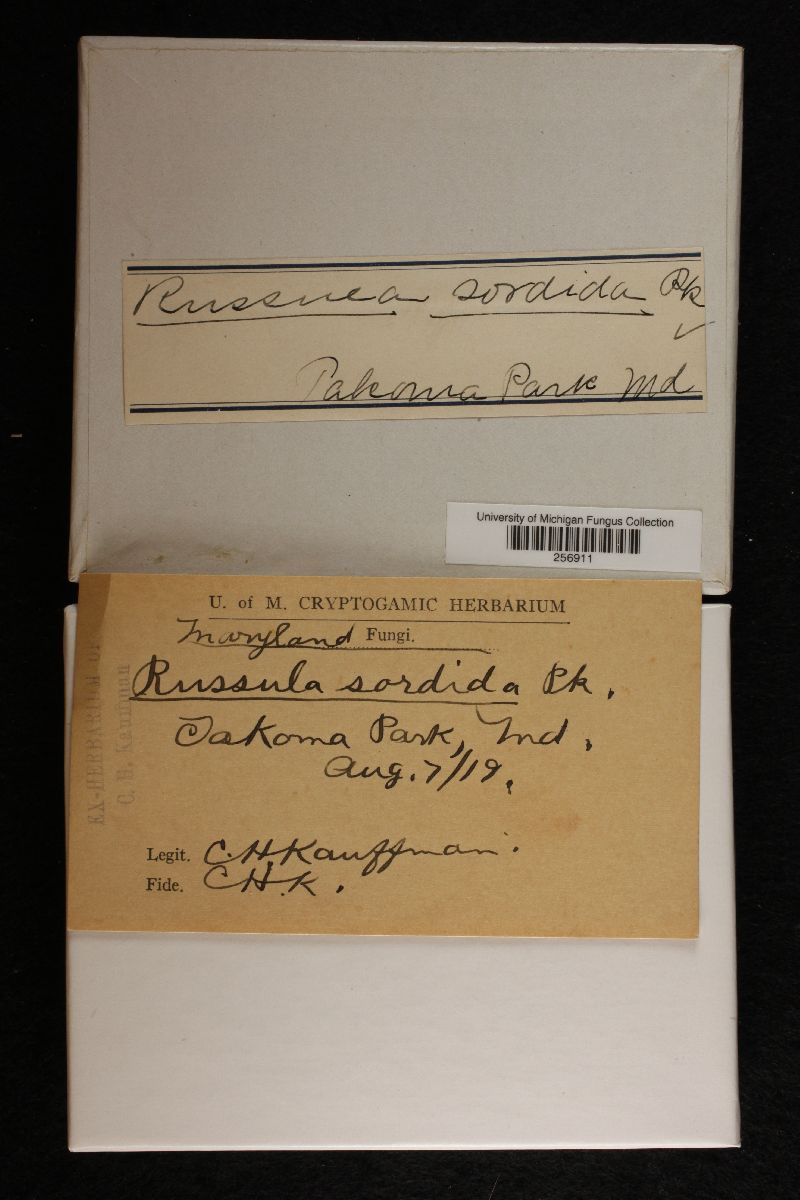 Russula sordida Pk
Takoma Park Md
University of Michigan Fungus Collection
256911
U. of M. CRYPTOGAMIC HERBARIUM
Maryland Fungi.
Russula sordida Pk.
Takoma Park, Md.
Aug. 7/19.
Legit. C.H. Kauffman.
Fide. C.H.K.
EX-HERBARIUM OF
C. H. Kauffman